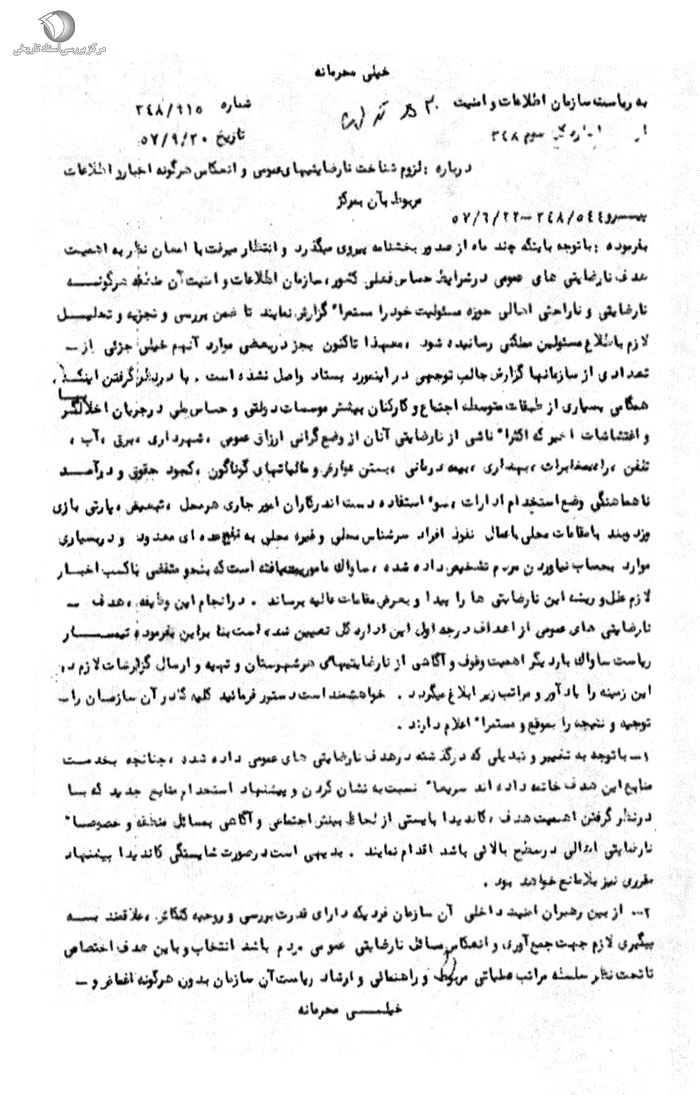 مرکز بررسی اسناد تاریخی
خیلی محرمانه
به ریاست سازمان اطلاعات و امنیت
شماره ۳۴۸/۹۱۵
از اداره کل سوم ۳۴۸
تاریخ ۵۷/۹/۲۰
درباره : لزوم شناخت نارضایتیهای عمومی و انعکاس هرگونه اخبار و اطلاعات
مربوط بآن بمرکز
پیرو ۳۴۸/۵۴۴-۵۷/۶/۲۲
بفرموده : باتوجه باینکه چند ماه از صدور بخشنامه پیروی میگذرد و انتظار میرفت با امعان نظر به اهمیت
هدف نارضایتی های عمومی درشرایط حساس فعلی کشور، سازمان اطلاعات و امنیت آن منطقه هرگونه
نارضایتی و ناراحتی اهالی حوزه مسئولیت خود را مستمرا" گزارش نمایند تا ضمن بررسی و تجزیه و تحلیل
لازم باطلاع مسئولین مملکتی رسانیده شود ، معهذا تاکنون بجز دربعضی موارد آنهم خیلی جزئی از -
تعدادی از سازمانها گزارش جالب توجهی در اینمورد بستاد واصل نشده است . با درنظر گرفتن اینکه ،
همگامی بسیاری از طبقات متوسط اجتماع و کارکنان بیشتر موسسات دولتی و حساس ملی درجریان اخلالگر
و اغتشاشات اخیر که اکثرا" ناشی از نارضایتی آنان از وضع گرانی ارزاق عمومی ، شهرداری ، برق ، آب ،
تلفن ، راه ، مخابرات ، بهداری ، بیمه درمانی ، بستن عوارض و مالیاتهای گوناگون ، کمبود حقوق و درآمد
ناهماهنگی وضع استخدام ادارات ، سوء استفاده دست اندرکاران امور جاری هرمحل ، تبعیض ، پارتی بازی
وزد وبند بامقامات محلی باعمال نفوذ افراد سرشناس محلی و غیره محلی به نفع عده ای معدود و دربسیاری
موارد بحساب نیاوردن مردم تشخیص داده شده ، ساواک ماموریت یافته است که بنحو مقتضی باکسب اخبار
لازم علل و ریشه این نارضایتی ها را پیدا و بعرض مقامات عالیه برساند . درانجام این وظیفه ، هدف -
نارضایتی های عمومی از اهداف درجه اول این اداره کل تعیین شده است بنا براین بفرموده تیمسار
ریاست ساواک بار دیگر اهمیت وقوف و آگاهی از نارضایتیهای هرشهرستان و تهیه و ارسال گزارشات لازم در
این زمینه را یادآور و مراتب زیر ابلاغ میگردد . خواهشمند است دستور فرمائید کلیه کادر آن سازمان را -
توجیه و نتیجه را بموقع و مستمرا" اعلام دارند .
۱- باتوجه به تغییر و تبدیلی که درگذشته درهدف نارضایتی های عمومی داده شده ، چنانچه بخدمت
منابع این هدف خاتمه داده اند سریعا" نسبت به نشان کردن و پیشنهاد استخدام منابع جدید که با
درنظر گرفتن اهمیت هدف ، کاندیدا بایستی از لحاظ بینش اجتماعی و آگاهی بمسائل منطقه و خصوصا"
نارضایتی اهالی درسطح بالائی باشد اقدام نمایند . بدیهی است درصورت شایستگی کاندیدا پیشنهاد
مقرری نیز بلامانع خواهد بود .
۲- از بین رهبران امنیت داخلی آن سازمان فردیکه دارای قدرت بررسی و روحیه کنکاش ، علاقمند به
پیگیری لازم جهت جمع آوری و انعکاس مسائل نارضایتی عمومی مردم باشد انتخاب و باین هدف اختصاص
تا تحت نظر سلسله مراتب عملیاتی مربوط و راهنمائی و ارشاد ریاست آن سازمان بدون هرگونه اغماض و -
خیلی محرمانه